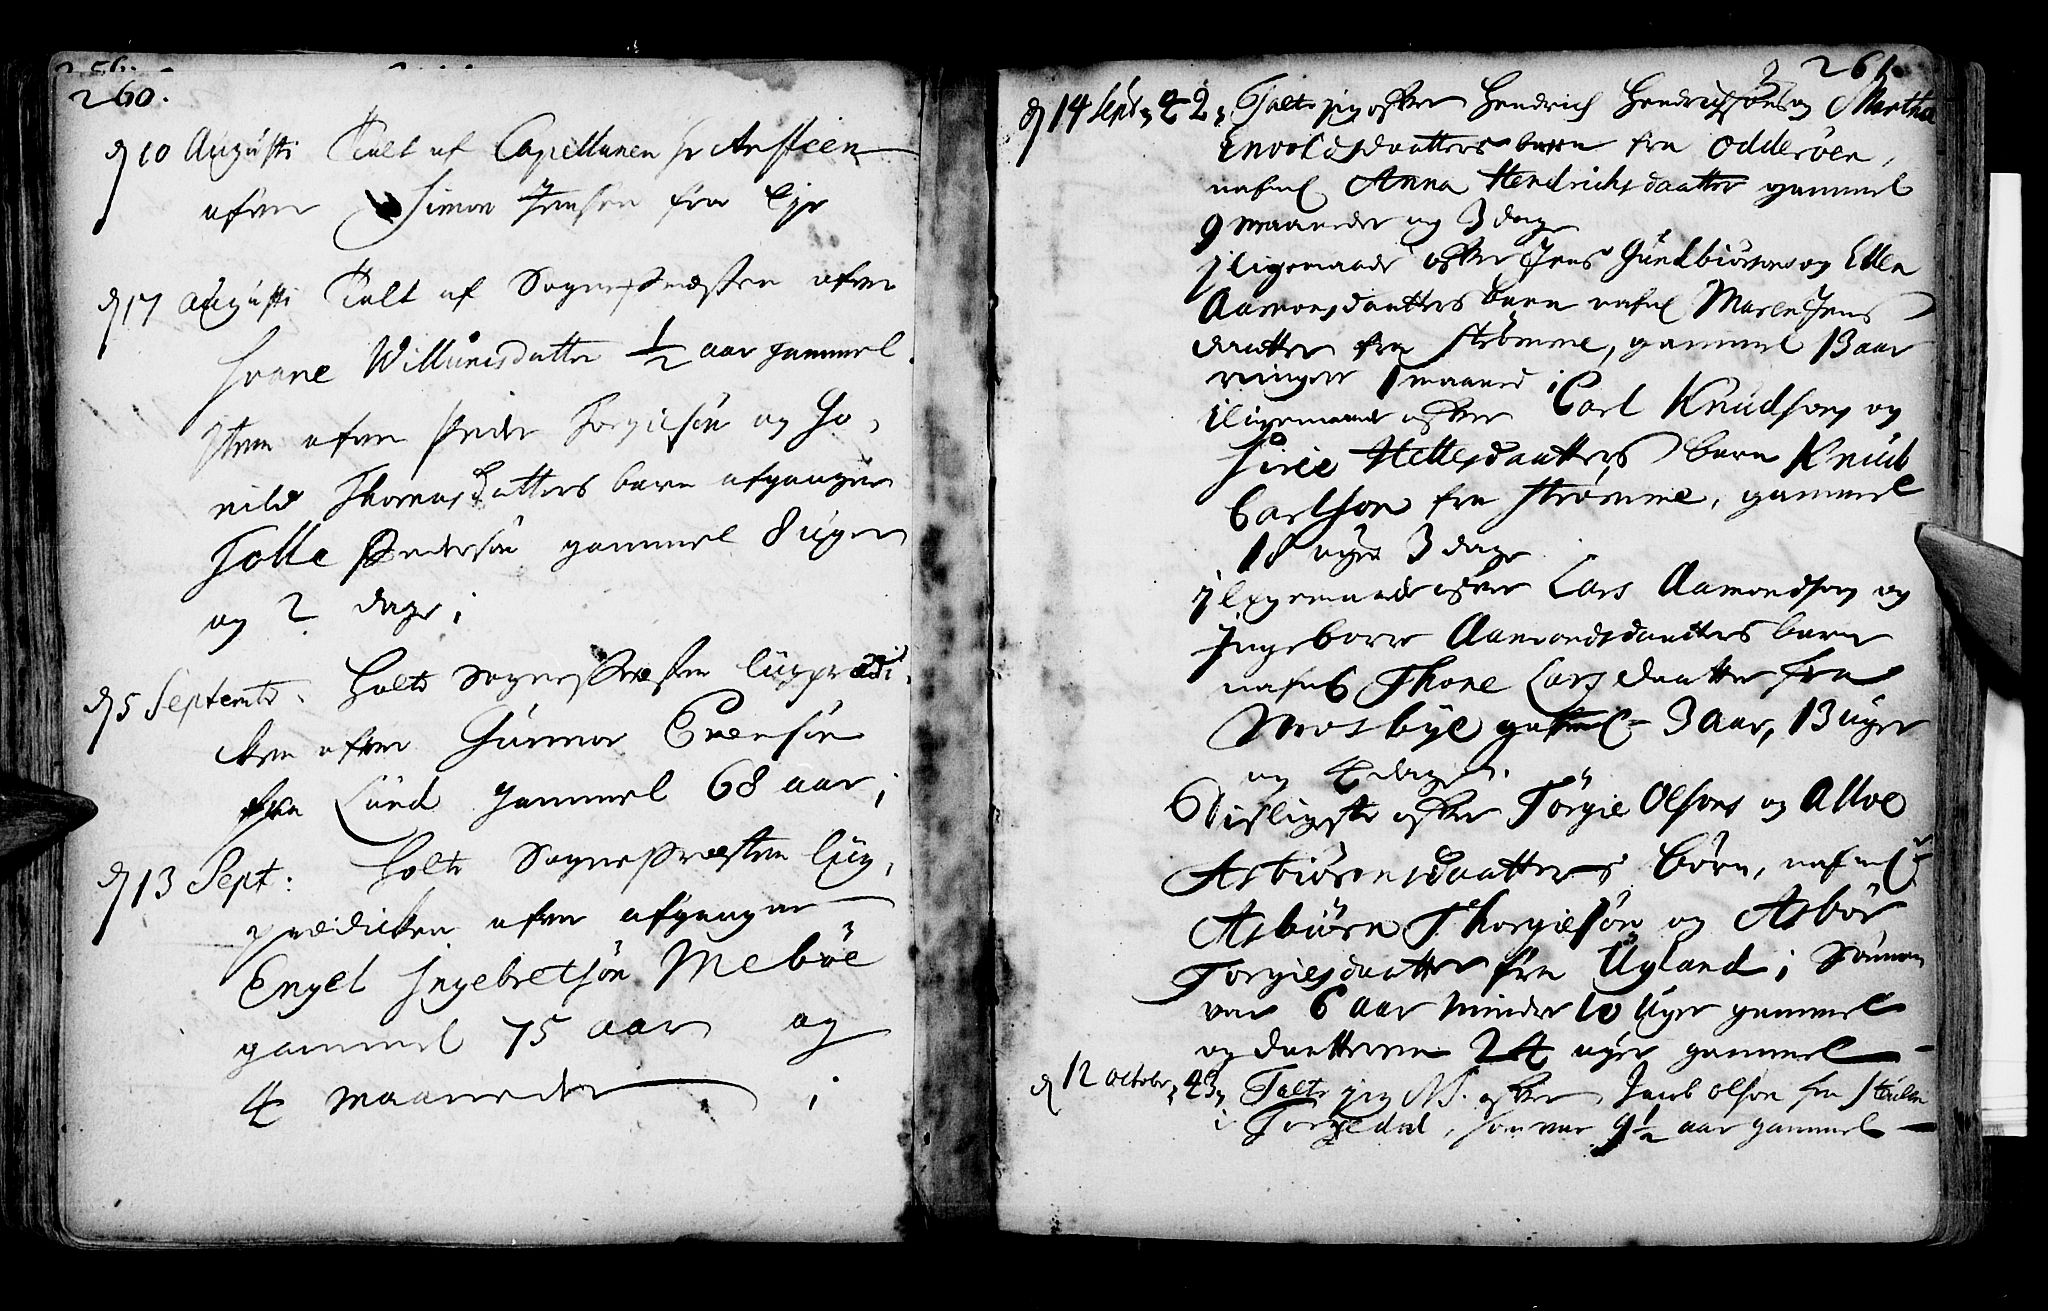 260.
d 10 Augusti Talt af Capellanen hr Ansteen
ofver Simon Jensen fra Eje
d 17 Augusti Talt af Sognepræsten ofver
Willumsdatter ½ aar gammel
Item ofver Peder Torgiesön og Go,
nild Thomasdatters barn afgangen
Tolle Pedersön gammel 8 uger
og 2 dage;
d 5 Septemb: holte Sognepræsten liigprædi,
ken ofver Gunnar Evensön
fra Lund gammel 68 aar;
d 13 Sept: holte Sognepræsten liig,
prædicken ofver afgangne
Engel Ingebretsön Meböe
gammel 75 aar og
4 maaneder ;
261.
d 14 Sept: 42, Talte jeg ofver Hendrich Hendrichsöns og Martha
Envoldsdaatters barn fra Odderöen,
nafnl Anna Hendrichsdaatter gammel
9 maaneder og 3 dage
Jligemaade ofver Jens Gundbiörsens og Ellen
Aamonsdaatters barn nafnl Maren Jens
daatter fra Strömme, gammel 13 aar
ringere 1 maaned ;
iligemaade ofver Carl Knudsons og
Siree Hellesdaatters barn Knud
Carlson fra Strömme, gammel
18 uger 3 dage
Jligemaade ofver Lars Aamondsons og
Ingeborre Aamondsdaatters barn
nafnl Thone Larsdaatter fra
Mosbye gaml 3 aar, 13 uger
og 4 dage.
Disligeste ofver Törgie Olsons og Alloe
Asbiörensdaatters börn, nafnl:
Asbiörn Thorgiesön og Asbör
Torgiesdaatter fra Uyland; Sönnen
var 6 aar minder 10 uger gammel
og daatteren 24 uger gammel
d 12 octobr, 43, Talte jeg ofver Jacob Olson fra
i Torredal, som var 9½ aar gammel